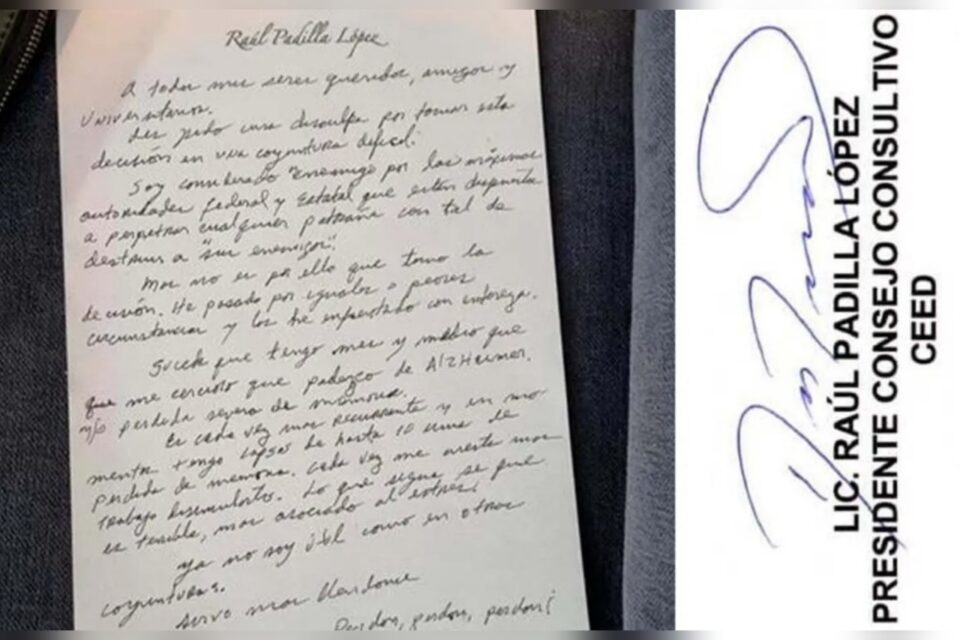 Raúl Padilla López
A todos mis seres queridos, amigos y
Universitarios.
Les pido una disculpa por tomar esta
decisión en una coyuntura difícil.
Soy considerado "enemigo por las máximas
autoridades federal y Estatal que están dispuestas
a perpetrar cualquier patraña con tal de
destruir a "sus enemigos".
Mas no es por ello que tomo la
decisión. He pasado por iguales o peores
circunstancias y las he enfrentado con entereza.
Sucede que tengo mes y medio que
que me cercioro que padezco de AlzHeimer
y/o perdida severa de memoria.
Es cada vez mas recurrente y en mo
mentos tengo lapsos de hasta 10 mins de
perdida de memoria. Cada vez me cuesta mas
trabajo disimularlos. Lo que sigue se que
es terrible, mas asociado al estrés.
Ya no soy útil como en otras
coyunturas.
mas
Perdon, perdon, perdon!
LIC. RAÚL PADILLA LÓPEZ
PRESIDENTE CONSEJO CONSULTIVO
CEED